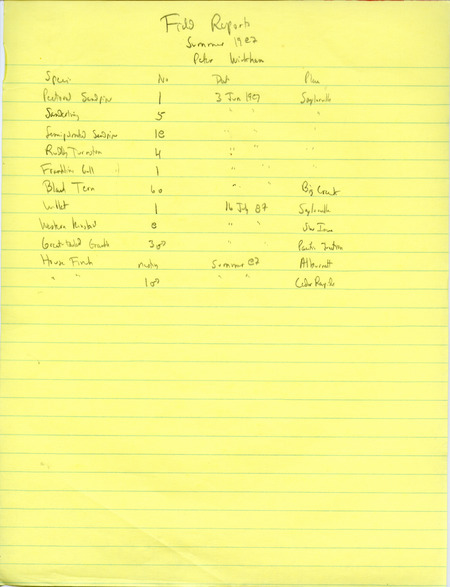 Field Reports
Summer 1987
Peter Wickham
Species No Date Place
Pectoral Sandpiper 1 3 Jun 1987 Saylorville
Sanderling 5 " "
Semipalmated Sandpiper 18 " "
Ruddy Turnstone 4 " "
Franklin's Gull 1 " "
Black Tern 60 " " Big Creek
Willet 1 16 July 87 Saylorville
Western Kingbird 8 " "
Great-tailed Grackle 300 " "
House Finch nesting Summer 87 Atkins
" " 100 " " Cedar Rapids